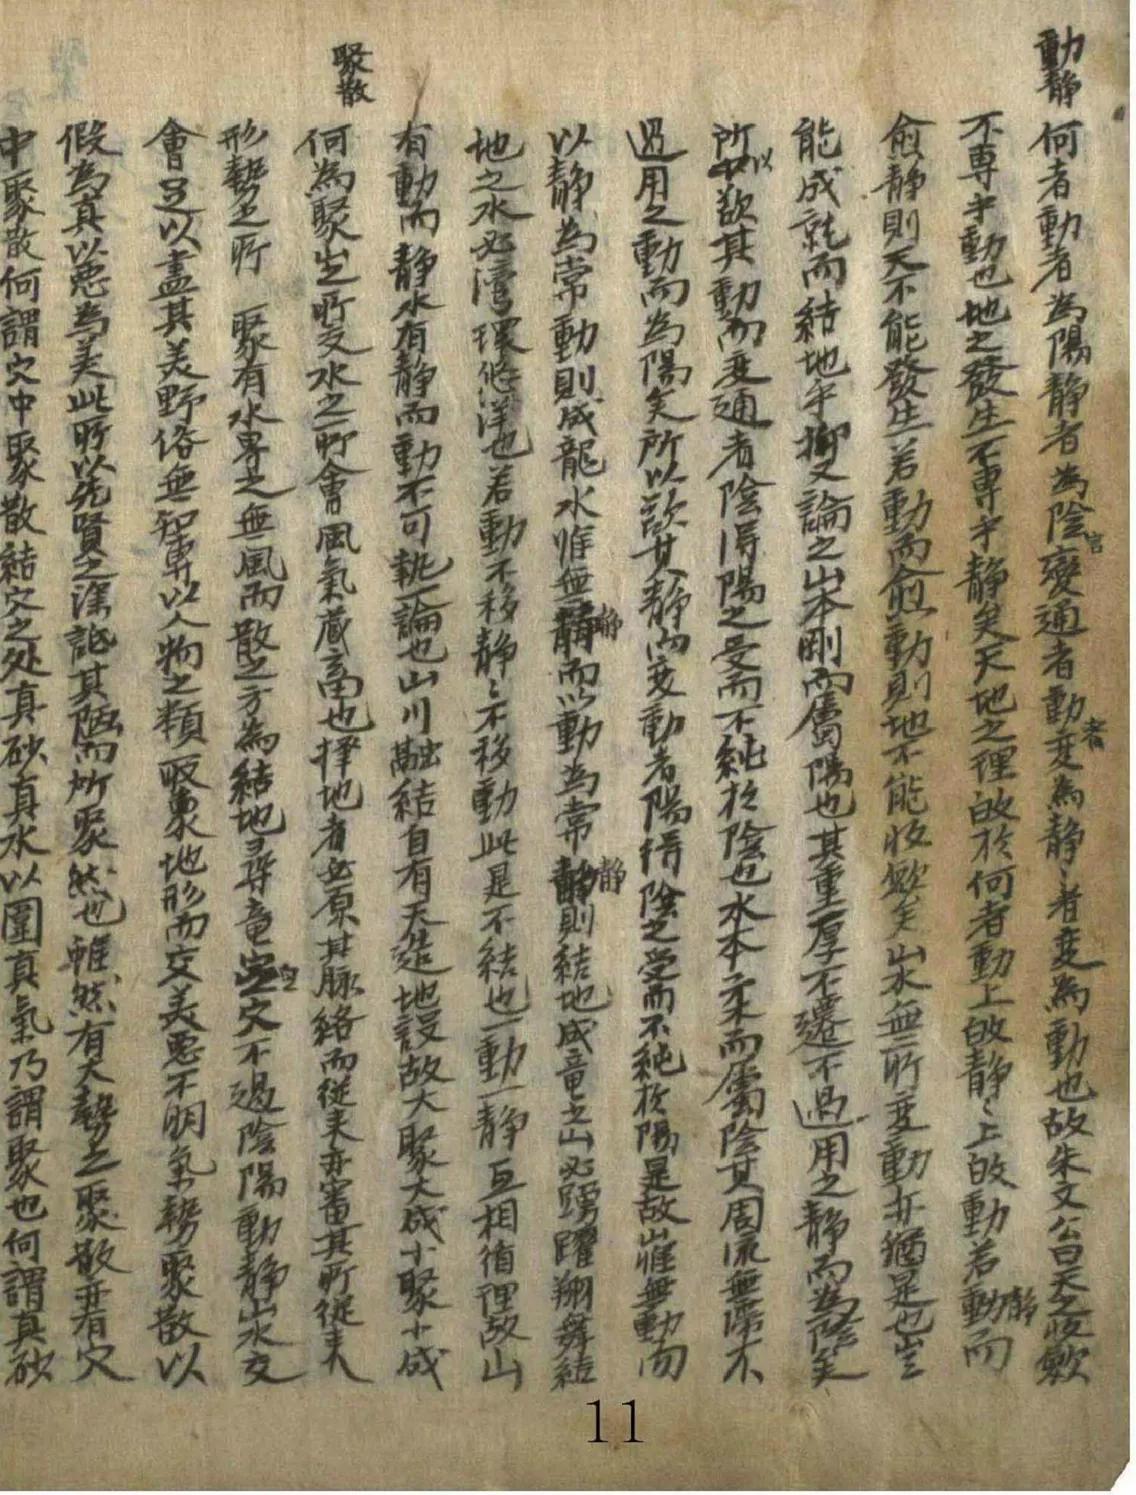 動静
何者動者為陽静者為陰変通者動変為静〻者変為動也故朱文公曰天之收歛
不專乎動也地之發生不專乎静矣天地之理故於何者動上故静〻上故動若動静而
愈静則天不能發生若動而愈動則地不能收歛矣山水無所変動亦猶是也豈
能成就而結地乎撫又論之山本剛而属陽也其重厚不遷不過用之静而為陰矣
所以欲其動而変通者陰得陽之受而不純於陰也水本柔而属陰其周流無滞不
過用之動而為陽矣所以欲其静而変動者陽得陰之受而不純於陽是故山惟無動而
以静為常動則成龍水惟無静而以動為常静則結地成竜之山必踴躍翔舞結
地之水必湾環悠洋也若動不移静〻不移動此是不結也一動一静互相循理故山
有動而静水有静而動不可執一論也山川融結自有天造地設故大聚大成小聚小成
聚散
何為聚山之所交水之所會風氣蔵畜也擇地者必原其脉絡而從来亦審其所從来
形勢之所 聚有水界之無風而散之方為結地尋竜定穴不過陰陽動静山水交
會足以盡其美野俗無智専以人物之類取象地形而交美悪不明氣勢聚散以
假為真以悪為美此所以先賢之深詆其陋而所聚然也雖然有大勢之聚散並有穴
中聚散何謂穴中聚散結穴之処真砂真水以圍真氣乃謂聚也何謂真砂
11